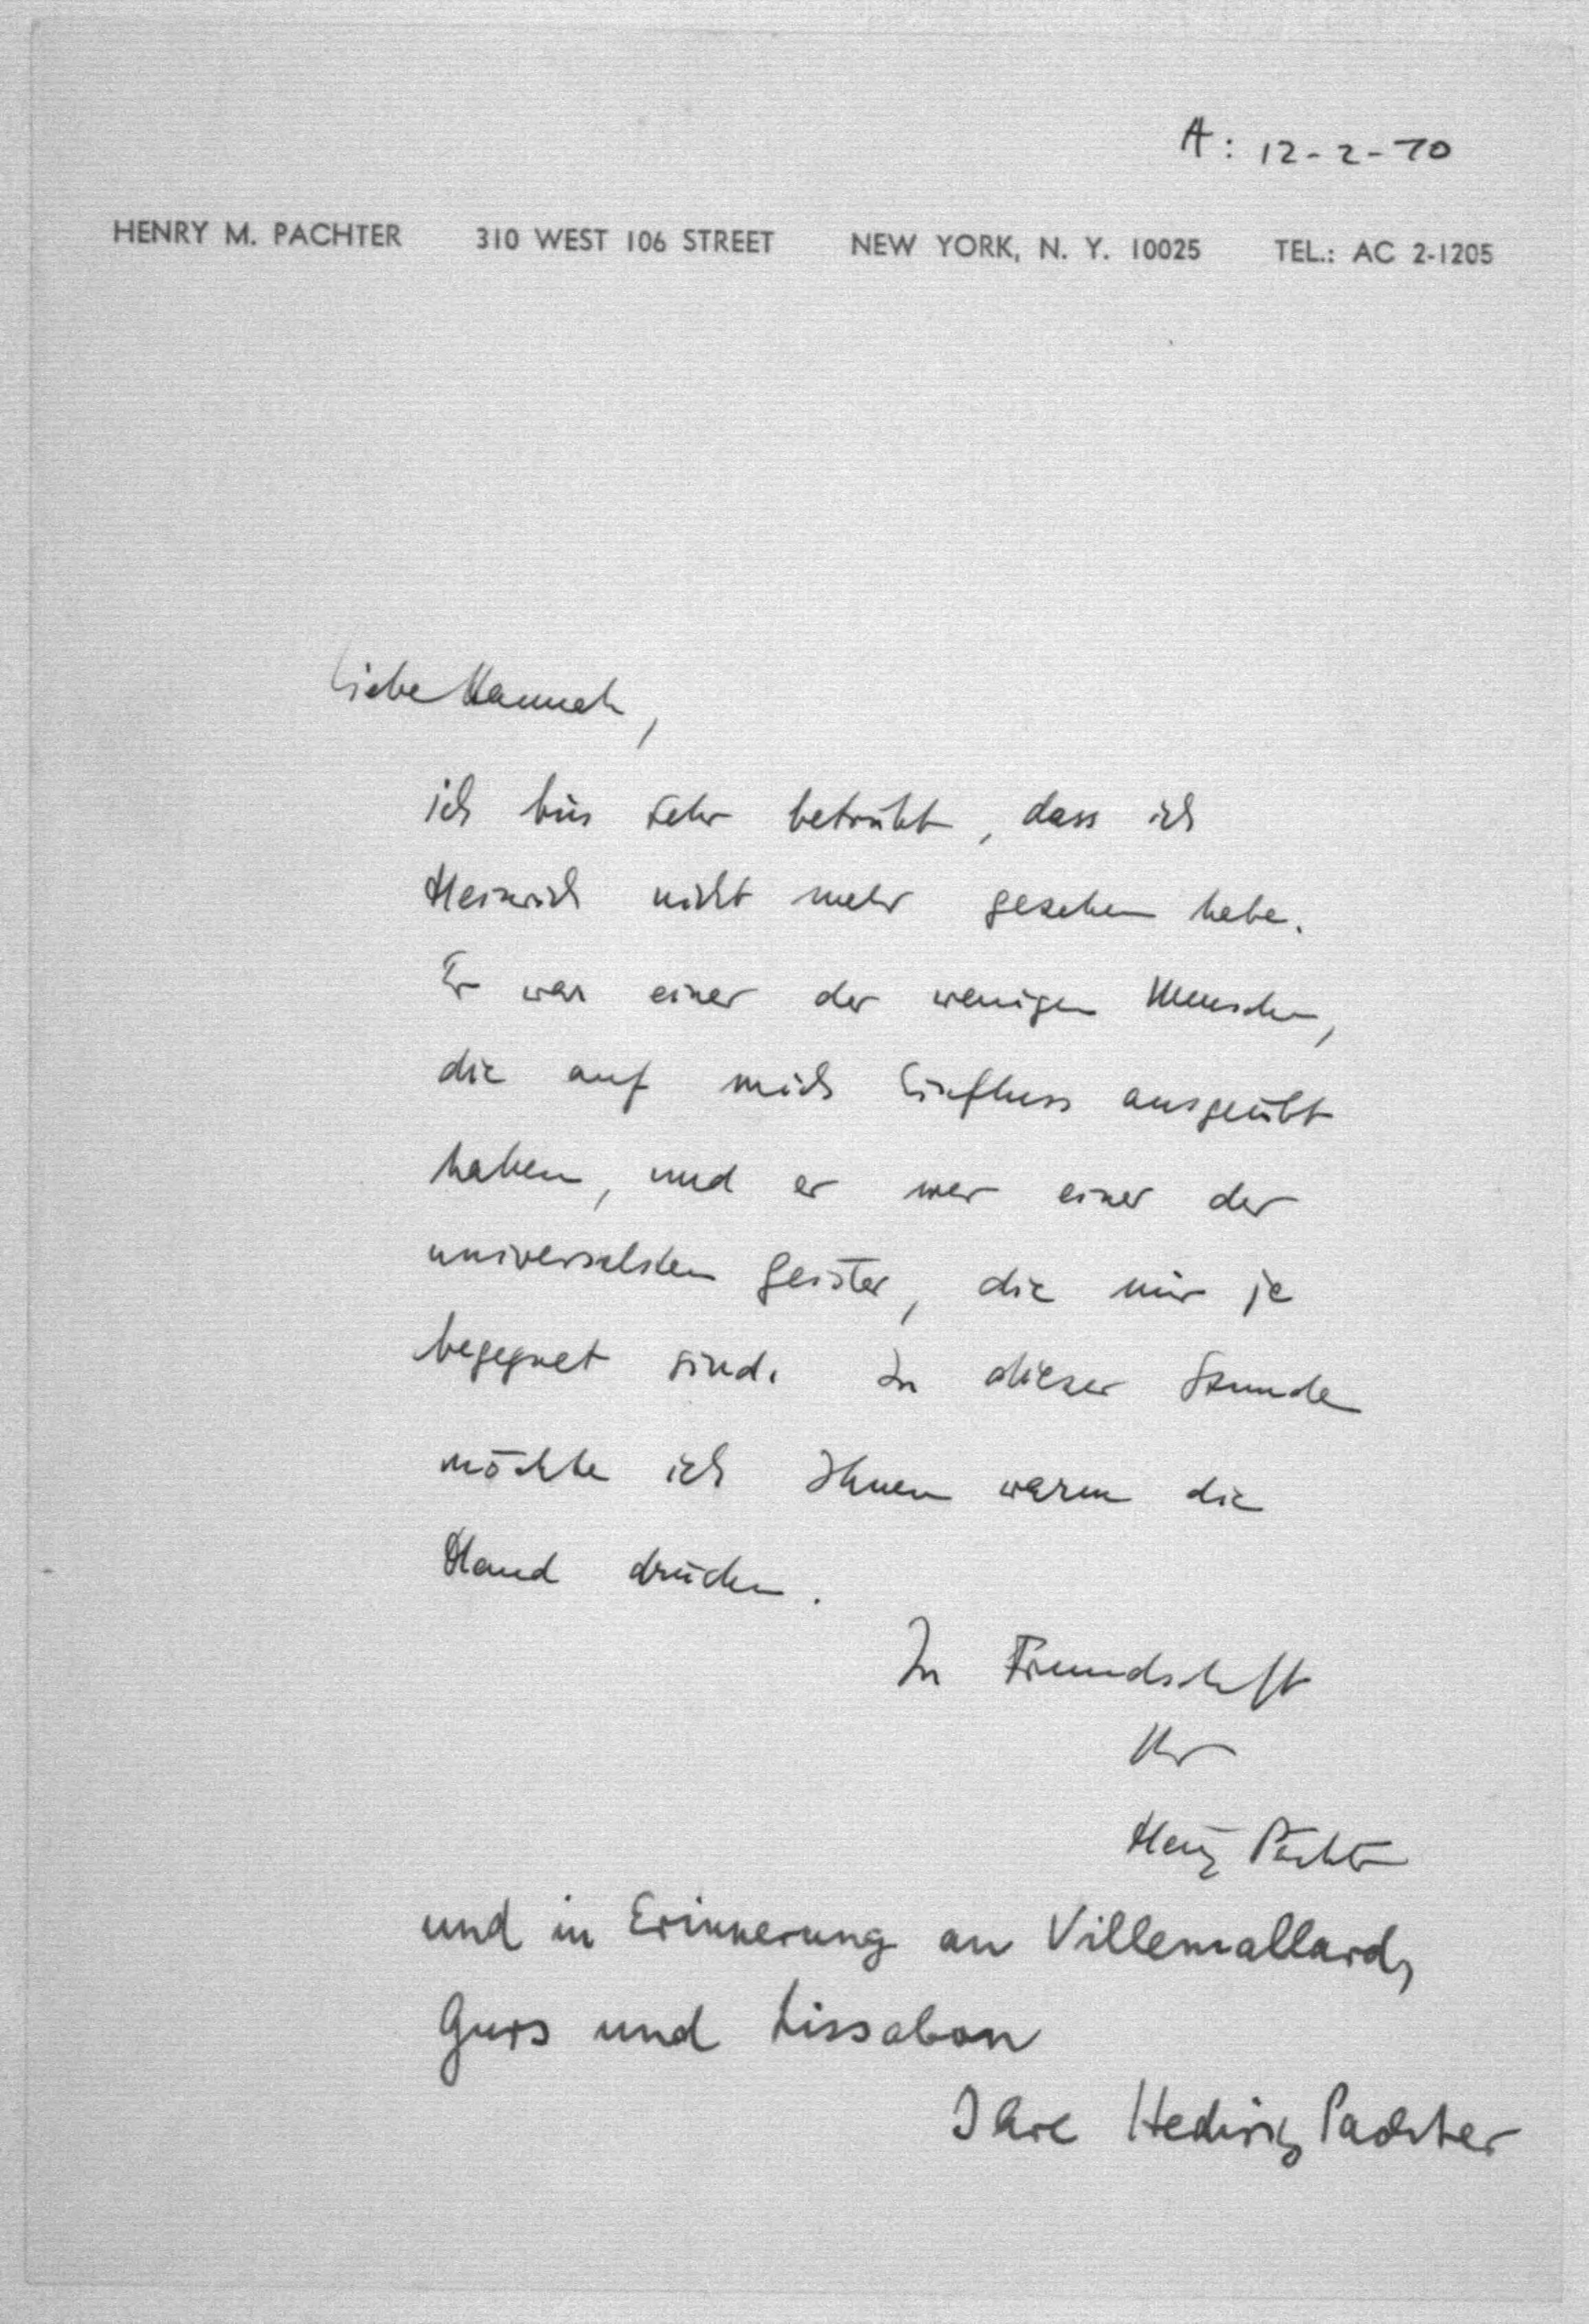 A: 12-2-70
HENRY M. PACHTER 310 WEST 106 STREET NEW YORK, N. Y. 10025 TEL.: AC 2-1205
Liebe Hannah,
ich bin sehr betrübt, dass ich
Heinrich nicht mehr gesehen habe.
Er war einer der wenigen Menschen,
die auf mich Einfluss ausgeübt
haben, und er war einer der
universalsten Geister, die mir je
begegnet sind. In dieser Stunde
möchte ich Ihnen warm die
Hand drücken.
In Freundschaft
Ihr
Heinz Pächter
und in Erinnerung an Villemallard,
Gurs und Lissabon
Ihre Hedwig Pachter